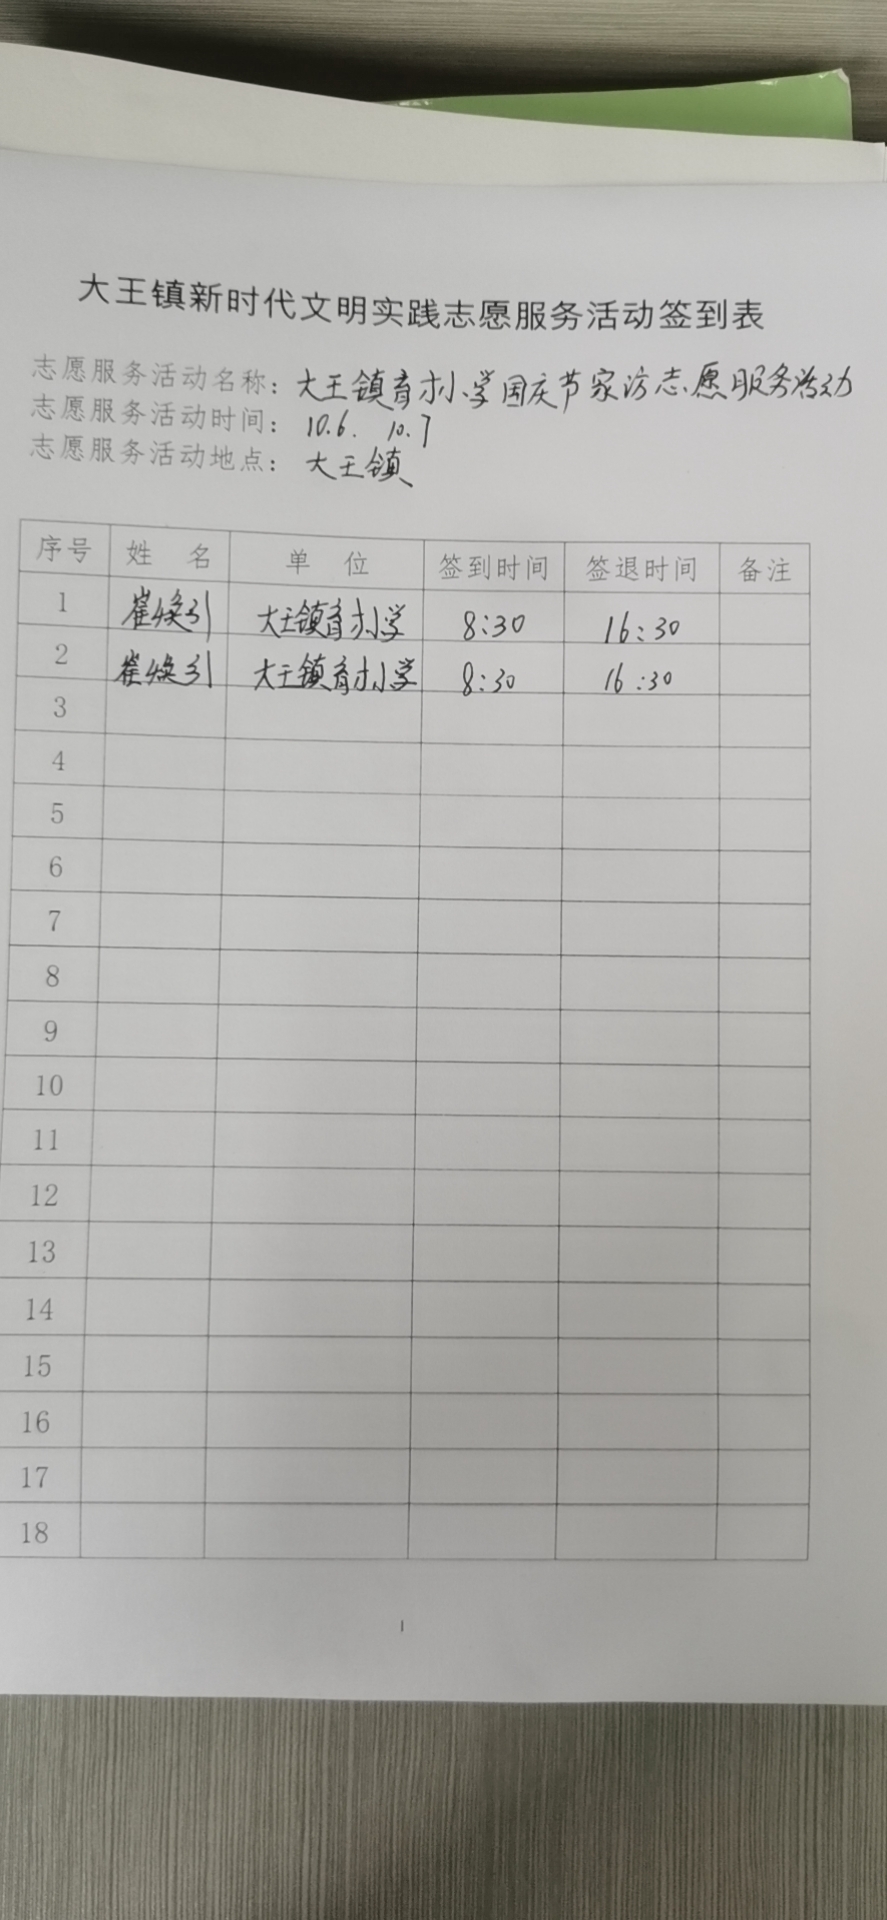 大王镇新时代文明实践志愿服务活动签到表
志愿服务活动名称：大王镇育才小学国庆节家访志愿服务活动
志愿服务活动时间：10.6. 10.7
志愿服务活动地点：大王镇
序号 姓 名 单 位 签到时间 签退时间 备注
1 崔焕引 大王镇育才小学 8:30 16:30
2 崔焕引 大王镇育才小学 8:30 16:30
3
4
5
6
7
8
9
10
11
12
13
14
15
16
17
18
1